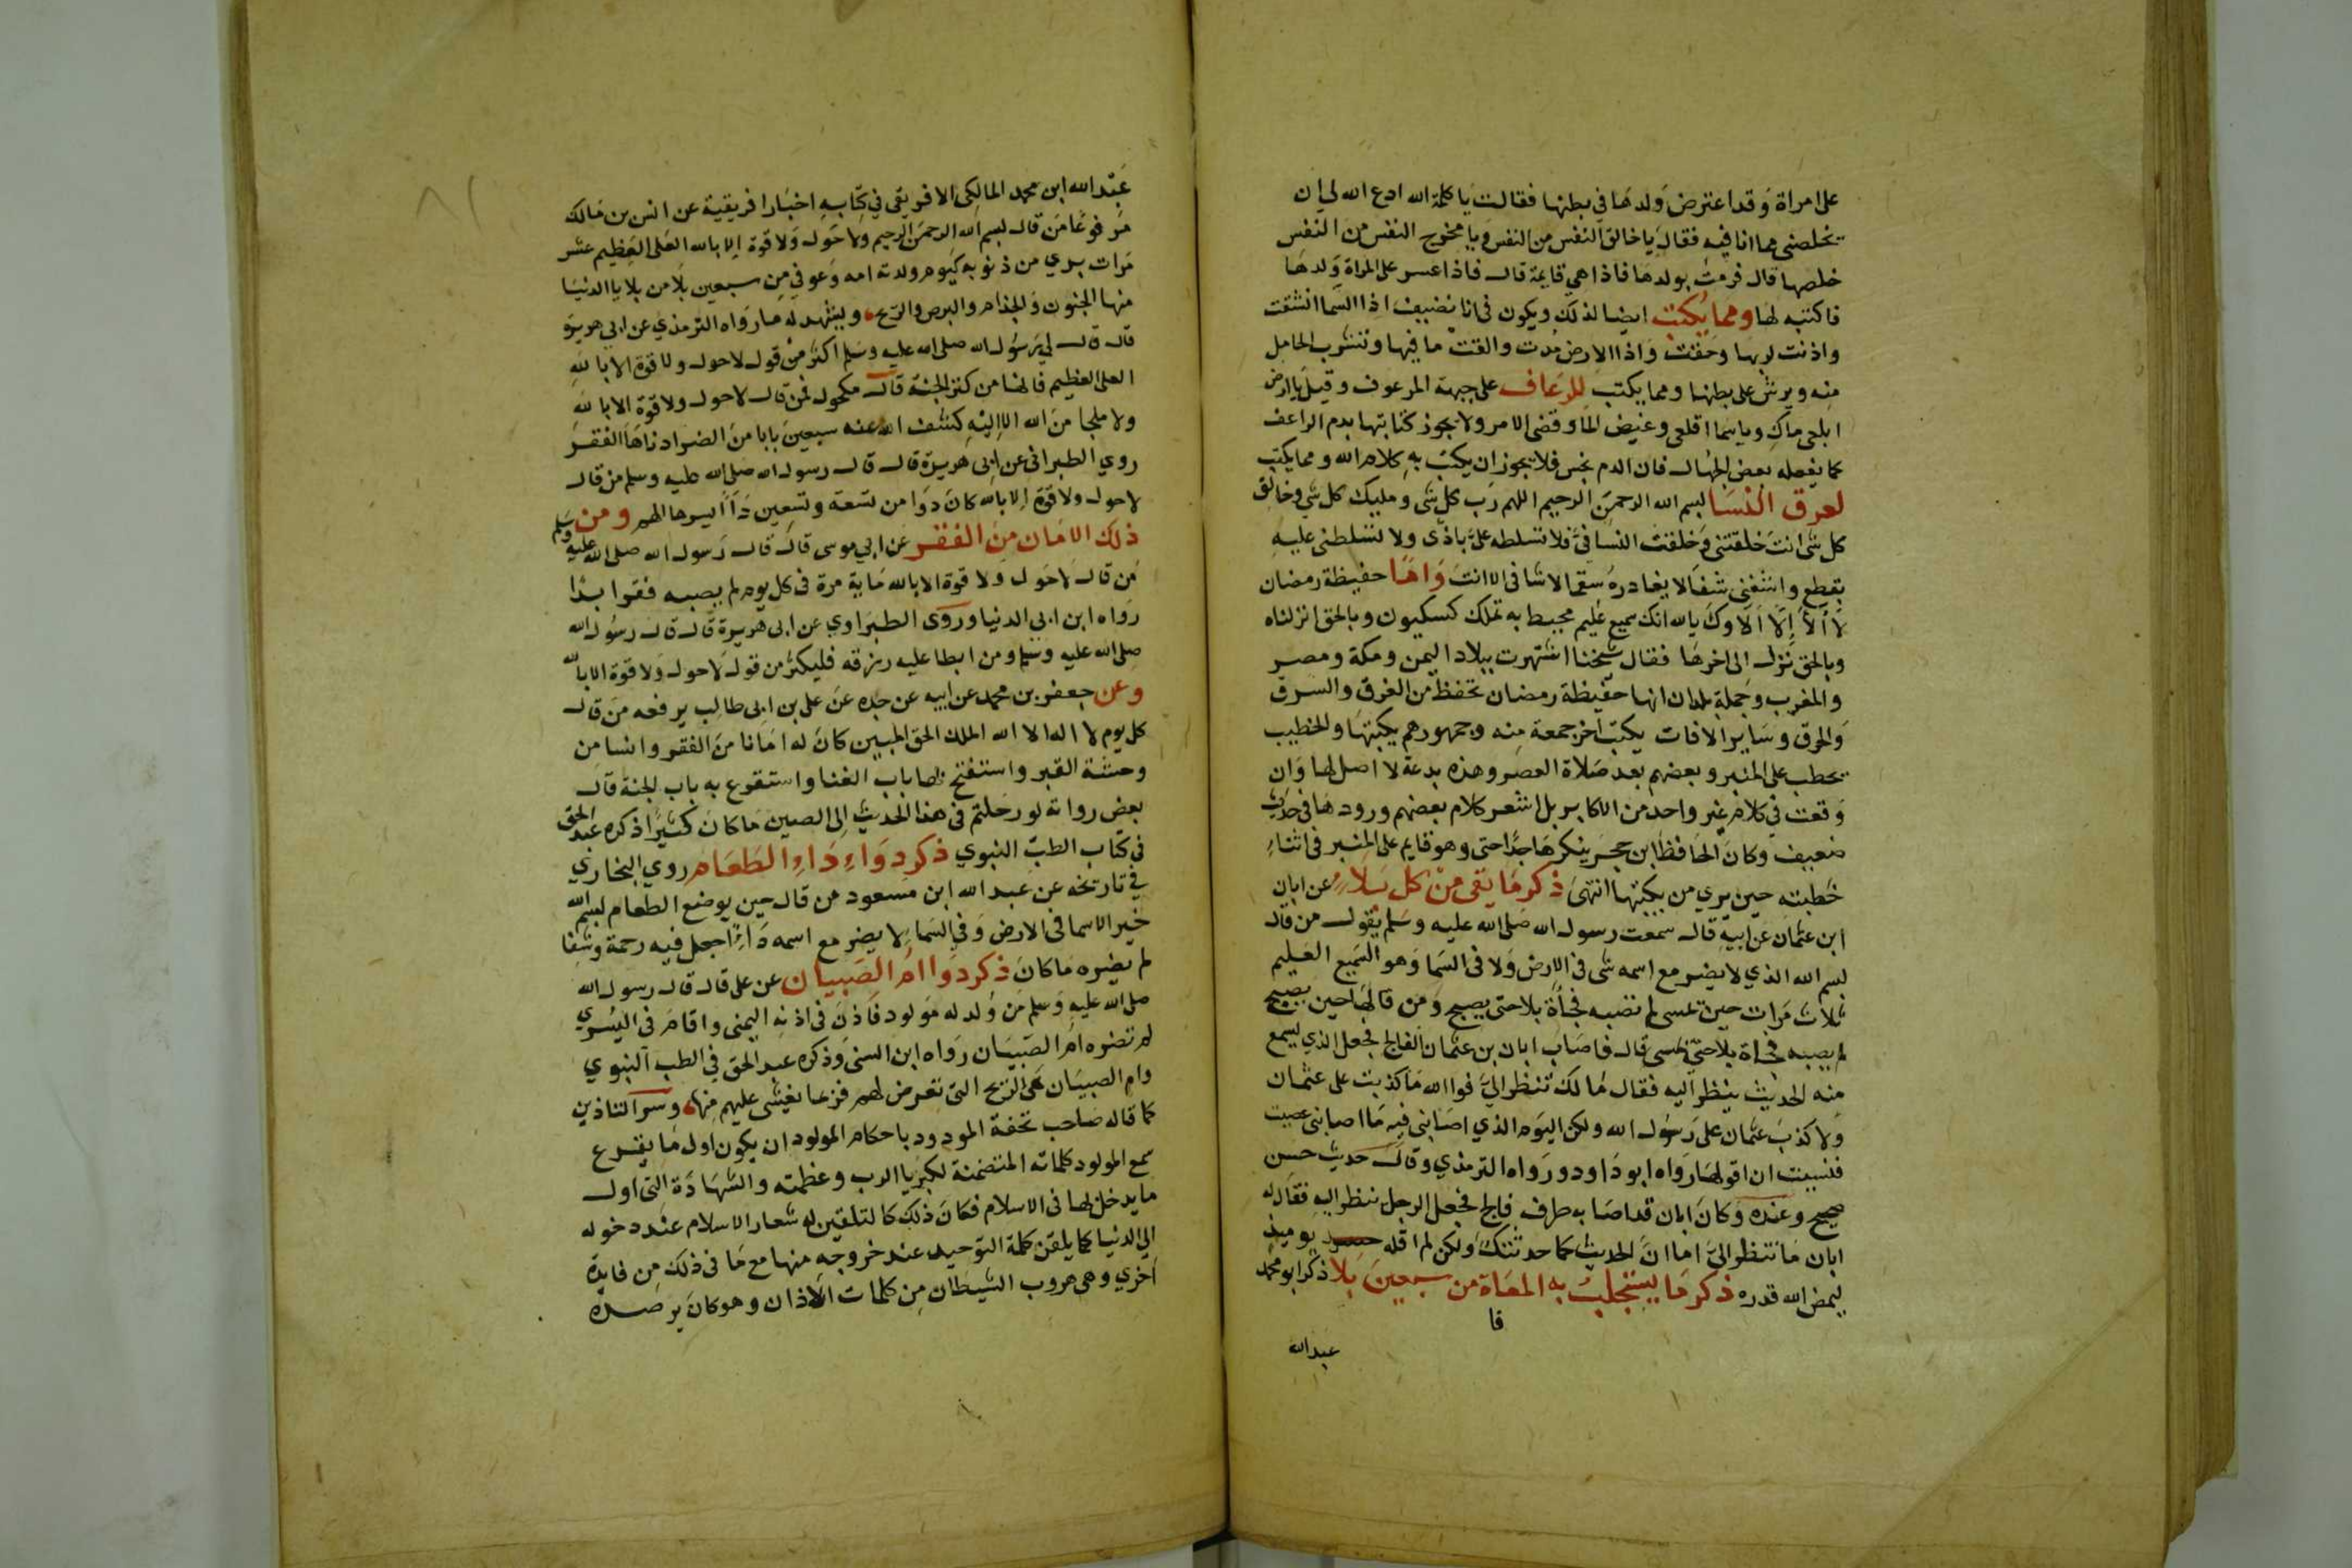 على امراة وقد اعترض ولدها في بطنها فقالت يا كلمة الله ادع الله لي ان
يخلصني مما انا فيه فقال يا خالق النفس من النفس ويا مخرج النفس من النفس
خلصها قال فرمت بولدها فاذا هي قايمة قال فاذا عسر على المراة ولدها
فاكتبه لها ومما يكتب ايضا لذلك ويكون في انا نضيف اذا السما انشقت
واذنت لربها وحقت واذا الارض مدت والقت ما فيها وتشرب الحامل
منه ويرش على بطنها ومما يكتب للرعاف على جبهة المرعوف وقيل يا ارض
ابلعي ماك ويا سما اقلعي وغيض الما وقضي الامر ولا يجوز كتابتها بدم الراعف
كما يفعله بعض الجهال فان الدم نجس فلا يجوز ان يكتب به كلام الله ومما يكتب
لعرق النسا بسم الله الرحمن الرحيم اللهم رب كل شي ومليك كل شي وخالق
كل شي انت خلقتني وخلقت النسا في فلا تسلطه علي باذى ولا تسلطني عليه
بقطع واشفني شفا لا يغادر سقما لا شافي الا انت واما حفيظة رمضان
لا آلا إلا آلاوك يا لله انك سميع عليم محيط به علمك كعسلهون وبالحق انزلناه
وبالحق نزل الى اخرها فقال شيخنا اشتهرت ببلاد اليمن ومكة ومصر
والمغرب وجملة بلدان انها حفيظة رمضان تحفظ من الغرق والسرق
والحرق وساير الافات يكتب اخر جمعة منه وجمهورهم يكتبها والخطيب
يخطب على المنبر وبعضهم بعد صلاة العصر وهذه بدعة لا اصل لها وان
وقعت في كلام غير واحد من الاكابر بل اشعر كلام بعضهم ورودها في حديث
ضعيف وكان الحافظ ابن حجر ينكرها جدا حتى وهو قايم على المنبر في اثناء
خطبته حين يري من يكتبها انتهى ذكر ما يقي من كل بلاء عن ابان
ابن عثمان عن ابيه قال سمعت رسول الله صلى الله عليه وسلم يقول من قال
بسم الله الذي لا يضر مع اسمه شي في الارض ولا في السما وهو السميع العليم
ثلاث مرات حين يمسي لم تصبه فجأة بلا حتى يصبح ومن قالها حين يصبح
لم يصبه فجاة بلا حتى يمسي قال فاصاب ابان بن عثمان الفالج فجعل الذي يسمع
منه الحديث ينظر اليه فقال مالك تنظر الي فوالله ما كذبت على عثمان
ولا كذب عثمان على رسول الله ولكن اليوم الذي اصابني فيه ما اصابني غضبت
فنسيت ان اقولها رواه ابو داود ورواه الترمذي وقال حديث حسن
صحيح وعنده وكان ابان قد اصابه طرف فالج فجعل الرجل ينظر اليه فقال له
ابان ما تنظر الي اما ان الحديث كما حدثتك ولكن لم اقله يوميذ
ليمض الله قدره ذكر ما يستجلب به المعافاة من سبعين بلا ذكر ابو محمد
فا
عبد الله
عبد الله ابن محمد المالكي الافريقي في كتابه اخبار افريقية عن انس بن مالك
مرفوعا من قال بسم الله الرحمن الرحيم ولا حول ولا قوة الا بالله العلي العظيم عشر
مرات بري من ذنوبه كيوم ولدته امه وعوفي من سبعين بلا من بلايا الدنيا
منها الجنون والجذام والبرص والريح ويشهد له ما رواه الترمذي عن ابي هريرة
قال قال لي رسول الله صلى الله عليه وسلم اكثر من قول لا حول ولا قوة الا بالله
العلي العظيم فانها من كنز الجنة قال مكحول فمن قال لا حول ولا قوة الا بالله
ولا ملجا من الله الا اليه كشف الله عنه سبعين بابا من الضر ادناها الفقر
روي الطبراني عن ابي هريرة قال قال رسول الله صلى الله عليه وسلم من قال
لا حول ولا قوة الا بالله كان دوا من تسعة وتسعين داء ايسرها الهم ومن
ذلك الامان من الفقر عن ابي موسى قال قال رسول الله صلى الله عليه وسلم
من قال لا حول ولا قوة الا بالله ماية مرة في كل يوم لم يصبه فقر ابدا
رواه ابن ابي الدنيا وروى الطبراوي عن ابي هريرة قال قال رسول الله
صلى الله عليه وسلم ومن ابطا عليه رزقه فليكثر من قول لا حول ولا قوة الا بالله
وعن جعفر بن محمد عن ابيه عن جده عن علي بن ابي طالب يرفعه من قال
كل يوم لا اله الا الله الملك الحق المبين كان له امانا من الفقر وانسا من
وحشة القبر واستفتح بها باب الغنا واستقرع به باب الجنة قال
بعض رواته لو رحلتم في هذا الحديث الى الصين ما كان كثيرا ذكره عبد الحق
في كتاب الطب النبوي ذكر دواء داء الطعام روي البخاري
في تاريخه عن عبد الله ابن مسعود من قال حين يوضع الطعام بسم الله
خير الاسما في الارض وفي السماء لا يضر مع اسمه داء اجعل فيه رحمة وشفا
لم يضره ما كان ذكر دوا ام الصبيان عن علي قال قال رسول الله
صلى الله عليه وسلم من ولد له مولود فاذن في اذنه اليمنى واقام في اليسري
لم تضره ام الصبيان رواه ابن السني وذكره عبد الحق في الطب النبوي
وام الصبيان هي الريح التي تعرض لهم فربما يغشى عليهم منها وسر التاذين
كما قاله صاحب تحفة المودود باحكام المولود ان يكون اول ما يقرع
سمع المولود كلماته المتضمنة لكبريا الرب وعظمته والشهادة التي اول
ما يدخل بها في الاسلام فكان ذلك كالتلقين له شعار الاسلام عند دخوله
الي الدنيا كما يلقن كلمة التوحيد عند خروجه منها مع ما في ذلك من فايدة
اخري وهي هروب الشيطان من كلمات الاذان وهو كان يرصده